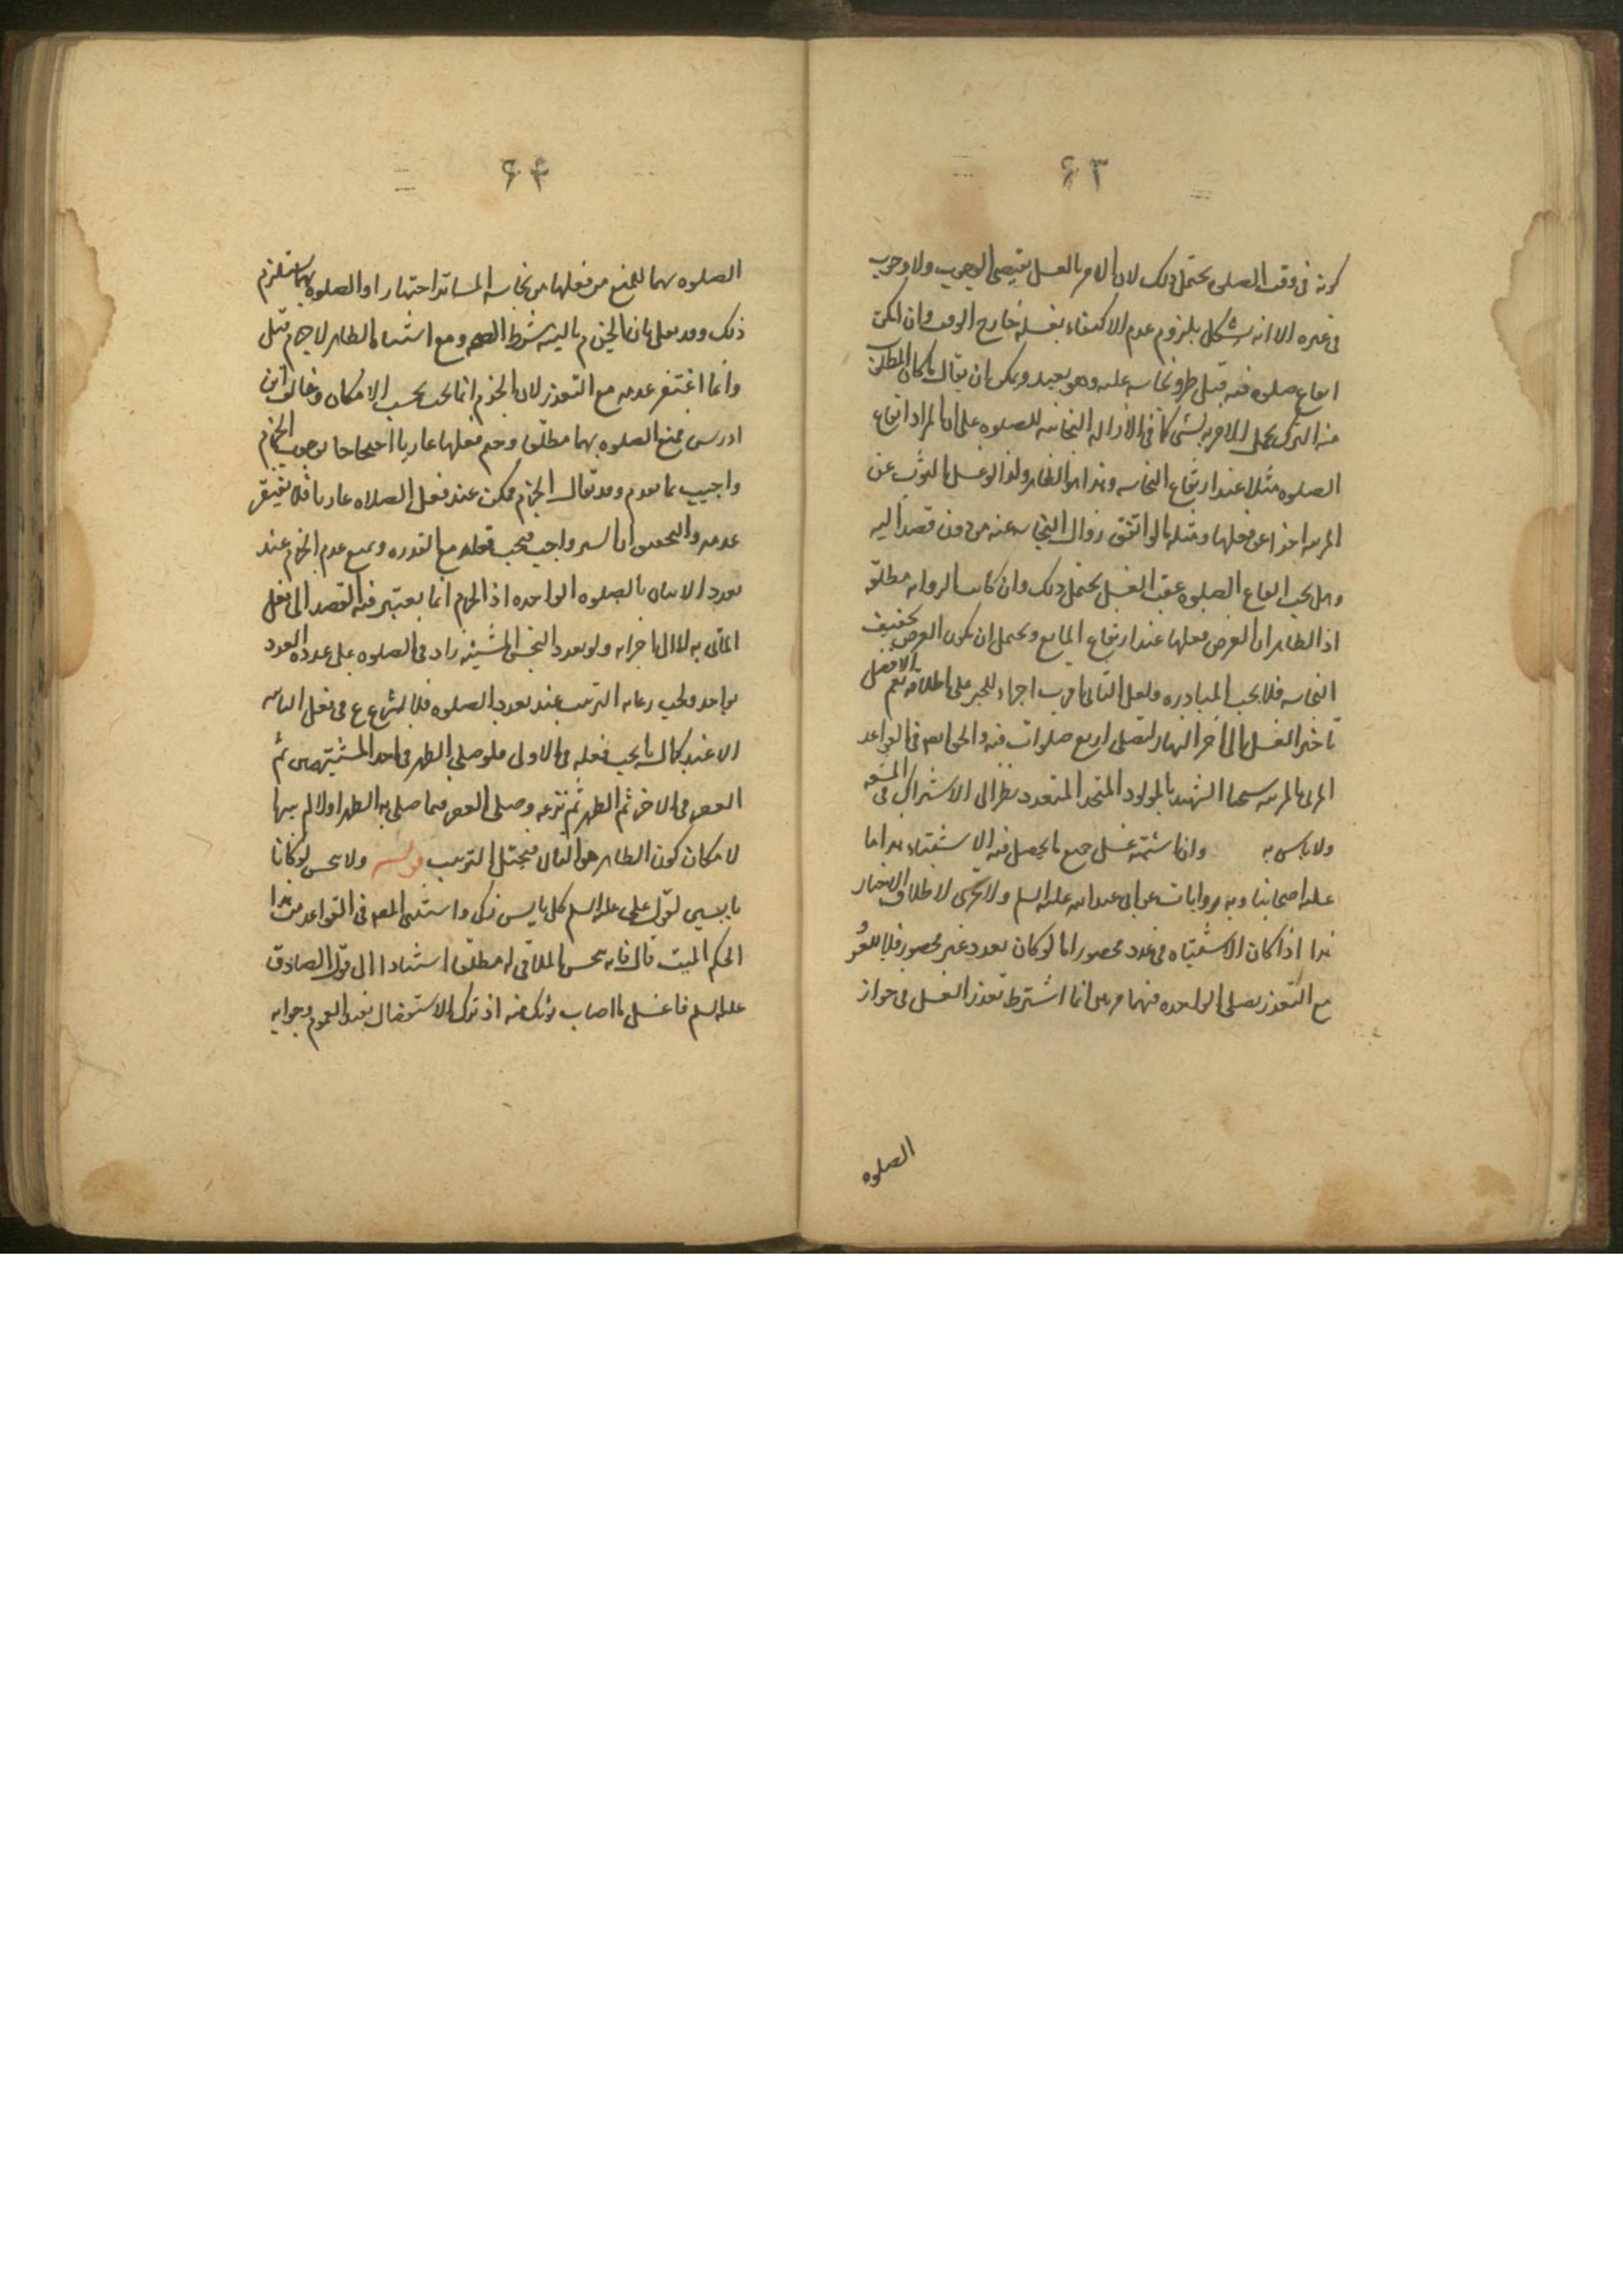 ۶۳
كونه فى وقت الصلوه يحتمل ذلك لان الامر بالغسل يقتضى الوجوب ولا وجوب
فى غيره الا انه يشكل بلزوم عدم الاكتفاء بغسله خارج الوقت وان امكن
ايقاع صلوه فيه قبل طرو نجاسه عليه وهو بعيد ويمكن ان يقال
منه
الصلوه مثلا عند ارتفاع النجاسه وهذا هو الظاهر ولذا لو غسل الثوب عن
المربيه اجزا عن فعلها ومثله ما لو اتفق زوال النجاسه عنه من دون قصد اليه
وهل يجب ايقاع الصلوه عقيب الغسل يحتمل ذلك وان كانت الروايه مطلقه
اذ الظاهر ان الغرض فعلها عند ارتفاع المانع ويحتمل ان يكون الغرض تخفيف
النجاسه فلا يجب المبادره ولعل الثانى اقرب اجراء للخبر على اطلاقه نعم الافضل
تاخير الغسل الى اخر النهار لتصلى اربع صلوات فيه والحق المص فى القواعد
المربى بالمربيه سيما الشهيد بالمولود المتحد المتعدد نظرا الى الاشتراك فى المشقه
ولا باس به وان اشتبه غسل جميع ما يحصل فيه الاشتباه هذا ما
عليه اصحابنا وبه روايات عن ابى عبد الله عليه السلم ولا تحرى لاطلاق الاخبار
هذا اذا كان الاشتباه فى عدد محصور اما لو كان بعدد غير محصور فلا
مع التعذر يصلى الواحده فيهما مرتين انما اشترط تعذر الغسل فى جواز
الصلوه
۶۴
الصلوه بهما للمنع من فعلها من نجاسه الساتر اختيارا والصلوه بهما يستلزم
ذلك وقد يعلل بان الجزم بالنيه شرط الصحه ومع اشتباه الطاهر لا جزم قيل
وانما اغتفر عدمه مع التعذر لان الجزم انما يجب بحسب الامكان وخالف ابن
ادريس فمنع الصلوه بهما مطلقا وحتم فعلها عاريا احتجاجا بوجوب الجزم
واجيب بما تقدم وقد يقال الجزم ممكن عند فعل الصلاه عاريا فلا يغتفر
عدمه والتحقيق ان الستر واجب فيجب فعله مع القدره ويمنع عدم الجزم عند
تعدد الاتيان بالصلوه الواحده اذ الجزم انما يعتبر فيه القصد الى فعل
الماتى به لا الى اجزائه ولو تعدد النجس المشتبه زاد فى الصلوه على عدده العدد
بواحد ويجب رعايه الترتيب عند تعدد الصلوه فلا يشرع فى فعل الثانيه
الا عند كمال ما يجب فعله فى الاولى فلو صلى الظهر فى احد المشتبهين ثم
العصر فى الاخر ثم الظهر ثم نزعه وصلى العصر فيما صلى به الظهر اولا لم يبرا
لامكان كون الطاهر هو الثانى فيختل الترتيب قوله ولا ينجس لو كانا
يابسين لقول على عليه السلم كل يابس زكى واستثنى المص فى القواعد من هذا
الحكم الميت قال فانه ينجس الملاقى له مطلقا استنادا الى قول الصادق
عليه السلم فاغسل ما اصاب ثوبك منه اذ ترك الاستفصال يفيد العموم وجوابه